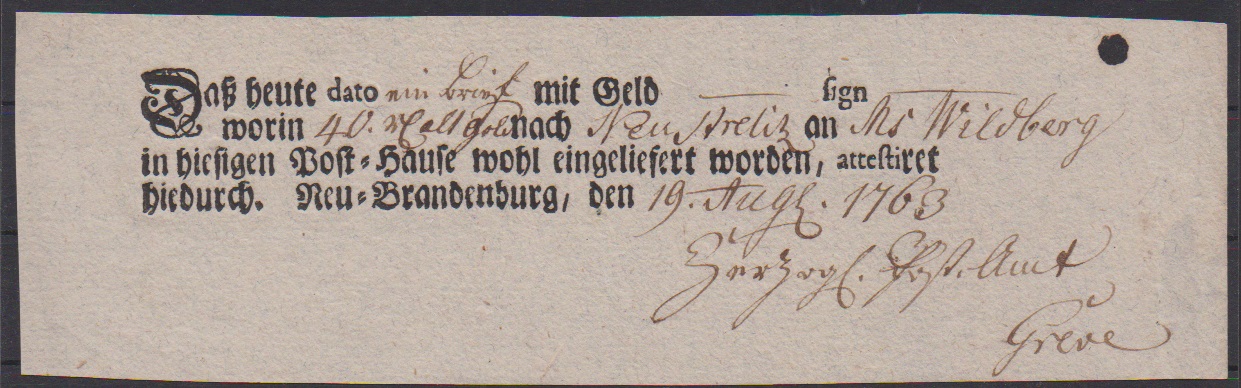 Daß heute dato ein brief mit Geld — sign —
worin 40. rl alt gold nach Neu Strelitz an Ms Wildberg
in hiesigen Post-Hause wohl eingeliefert worden, attestiret
hiedurch. Neu-Brandenburg, den 19. Augl. 1763
Herzogl. Post-Amt
Greve